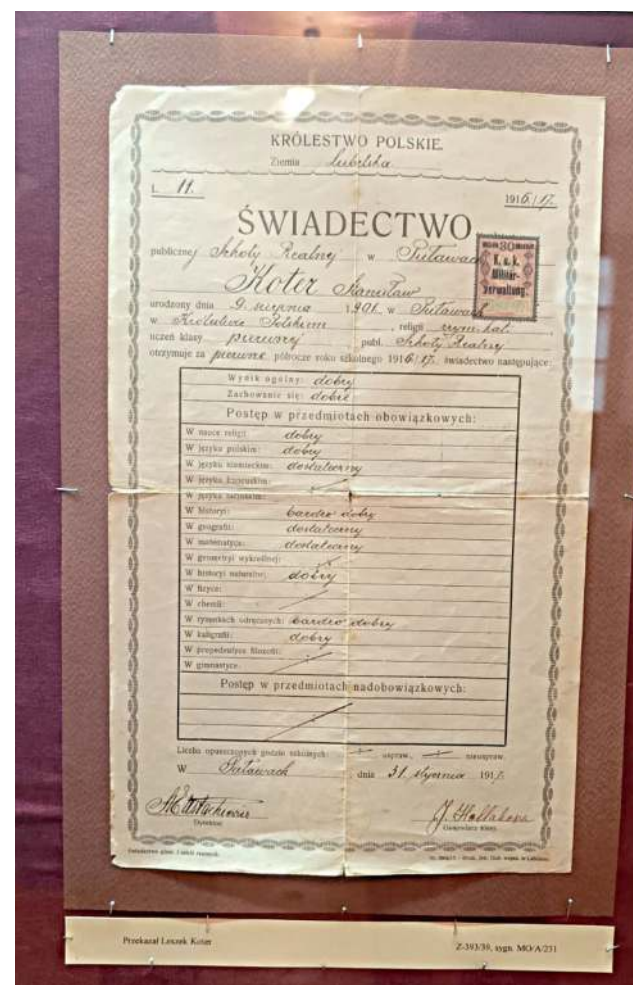 KRÓLESTWO POLSKIE.
Ziemia Lubelska
L. 11. 1916/17.
ŚWIADECTWO
publicznej Szkoły Realnej w Puławach
Koter Stanisław
30
K. u. k.
Militär-
verwaltung.
urodzony dnia 9. sierpnia 1901. w Puławach
w Królestwie Polskiem, religii rzym. kat.,
uczeń klasy pierwszej publ. Szkoły Realnej
otrzymuje za pierwsze półrocze roku szkolnego 1916/17. świadectwo następujące:
Wynik ogólny: dobry
Zachowanie się: dobre
Postęp w przedmiotach obowiązkowych:
W nauce religii: dobry
W języku polskim: dobry
W języku niemieckim: dostateczny
W języku francuskim:
W języku łacińskim:
W historyi: bardzo dobry
W geografii: dostateczny
W matematyce: dostateczny
W geometryi wykreślnej:
W historyi naturalnej: dobry
W fizyce:
W chemii:
W rysunkach odręcznych: bardzo dobry
W kaligrafii: dobry
W propedeutyce filozofii:
W gimnastyce:
Postęp w przedmiotach nadobowiązkowych:
Liczba opuszczonych godzin szkolnych: uspraw., nieuspraw.
W Puławach, dnia 31. stycznia 1917.
Dyrektor. Gospodarz klasy.
Przekazał Leszek Koter Z-393/39, sygn. MO/A/231